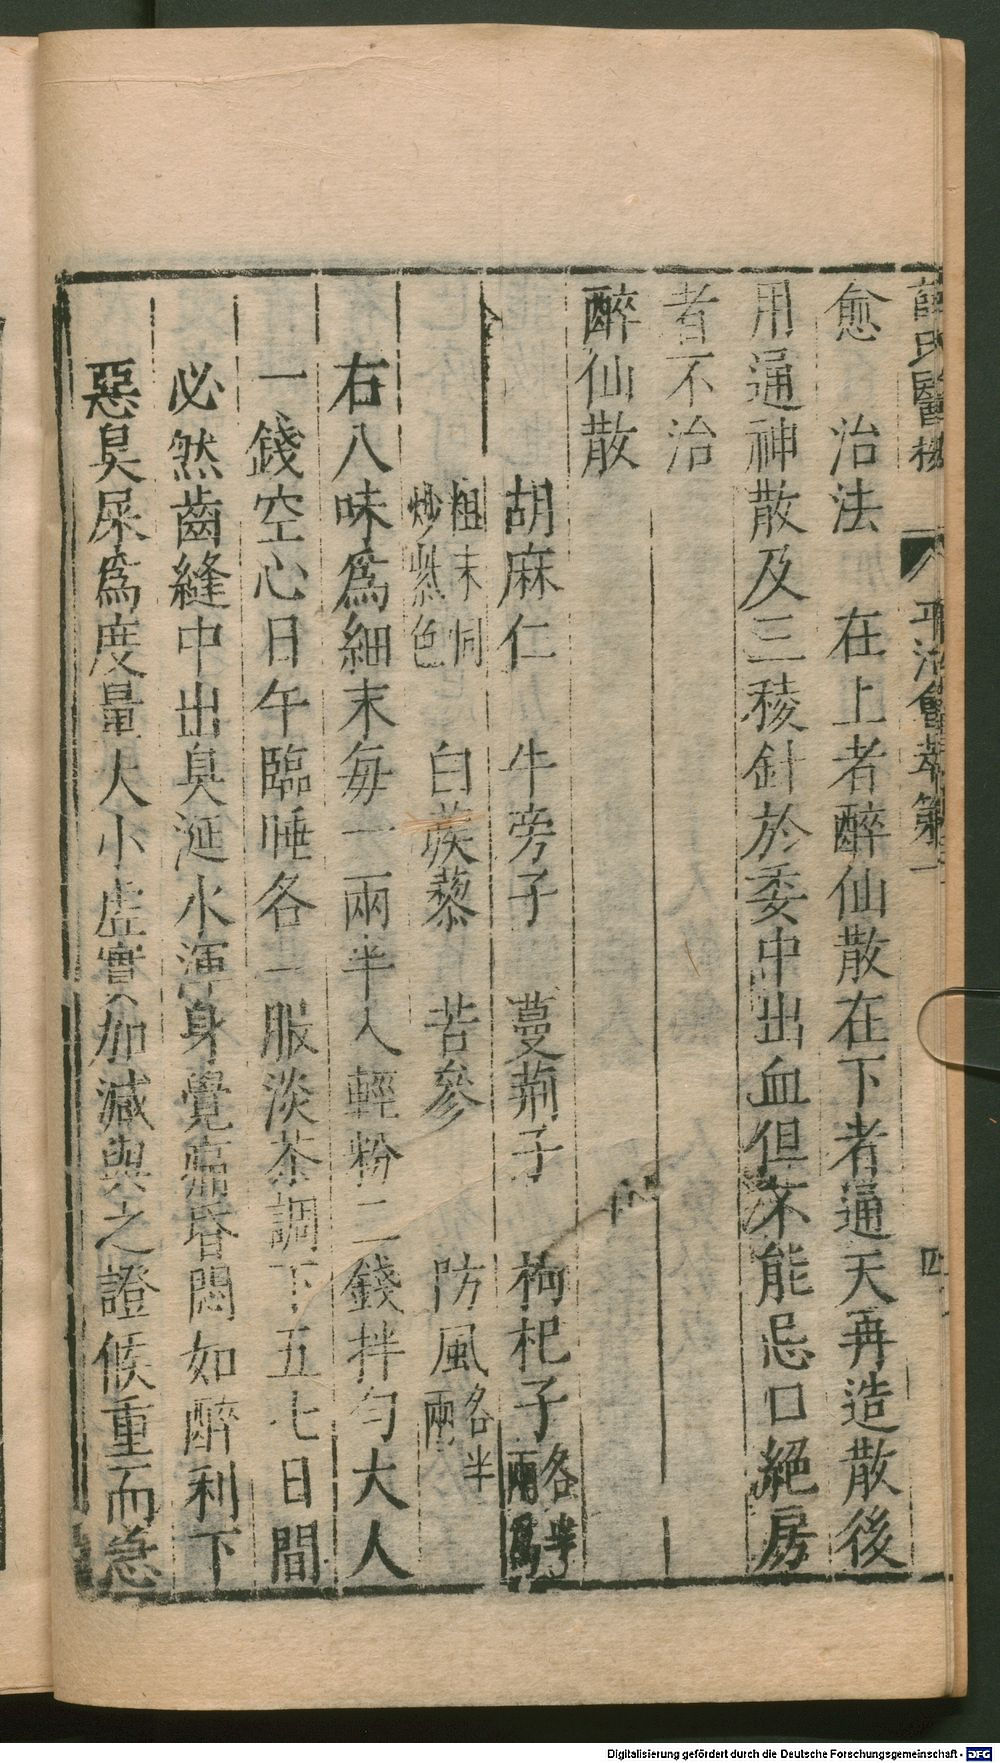 薛氏醫按 八 平治會萃卷一 四
愈 治法 在上者醉仙散在下者通天再造散後
用通神散及三稜針於委中出血但不能忌口絕房
者不治
醉仙散
胡麻仁 牛旁子 蔓荊子 枸杞子各半兩爲
粗末同炒紫色 白蒺藜 苦參 防風各半兩
右八味爲細末每一兩半入輕粉二錢拌勻大人
一錢空心日午臨唾各一服淡茶調下五七日間
必然齒縫中出臭涎水渾身覺痛昏悶如醉利下
惡臭屎爲度量大小虛實加減與之證候重而急
Digitalisierung gefördert durch die Deutsche Forschungsgemeinschaft - DFG